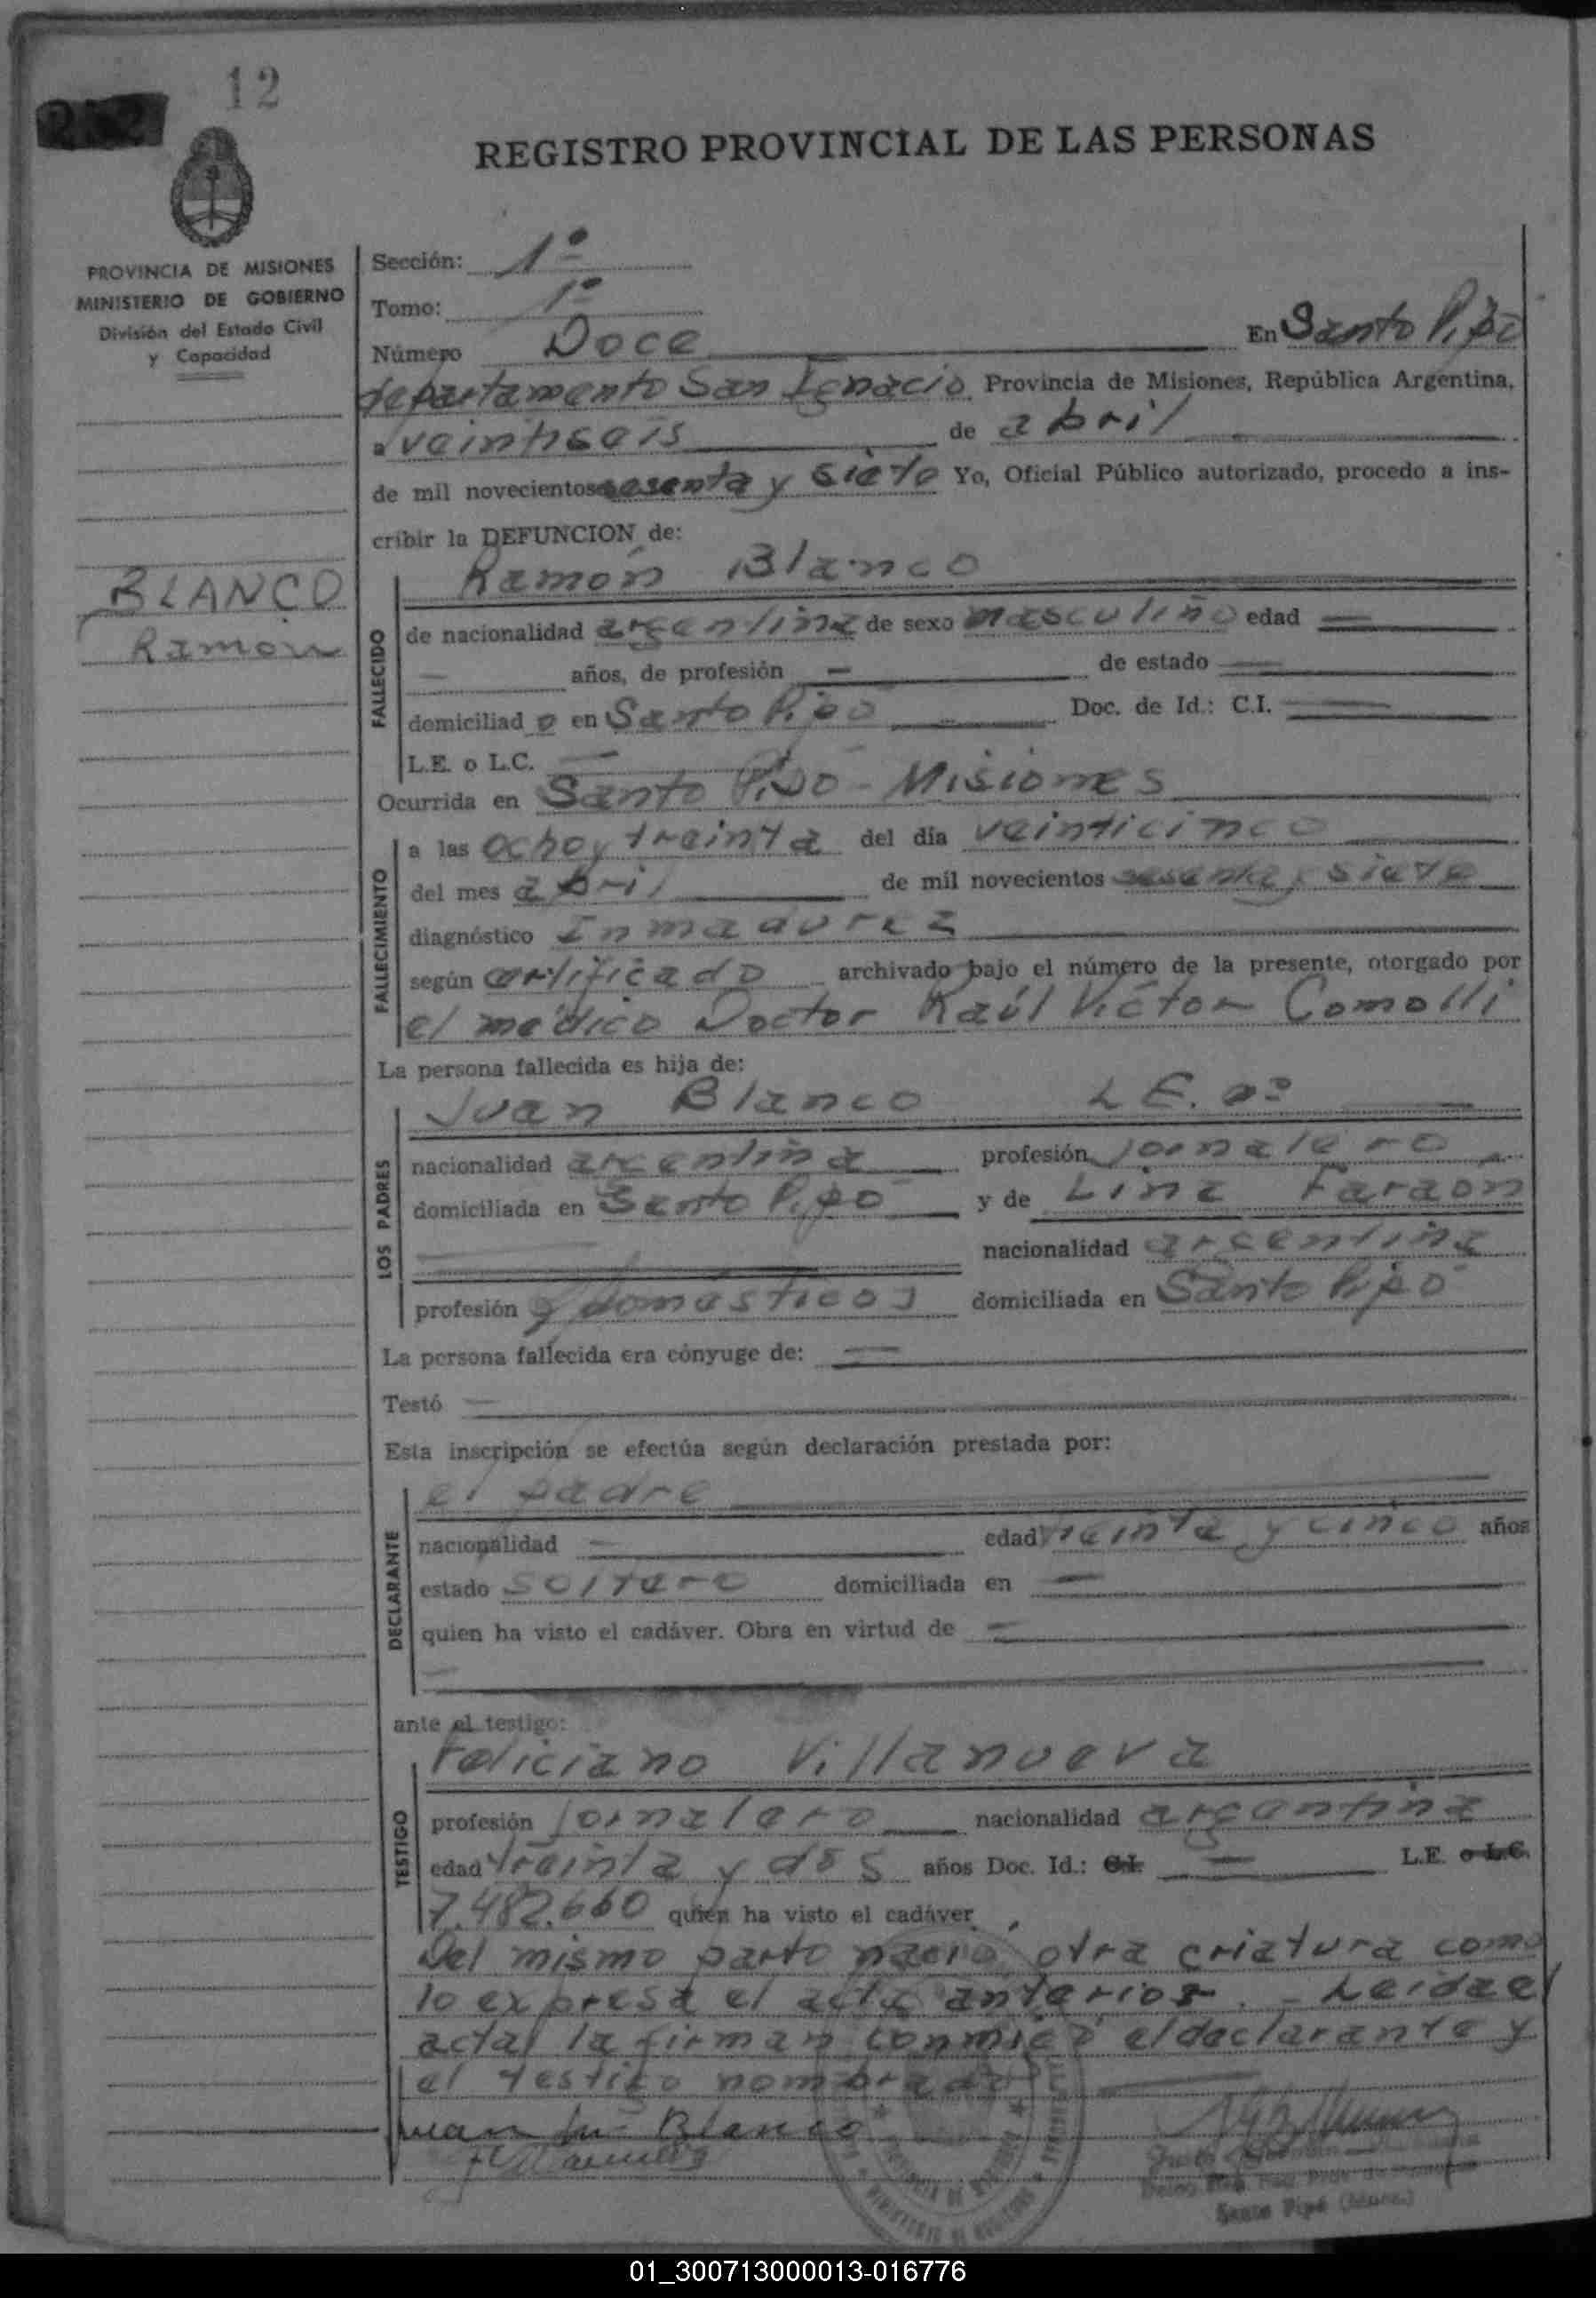 12
REGISTRO PROVINCIAL DE LAS PERSONAS
PROVINCIA DE MISIONES
MINISTERIO DE GOBIERNO
División del Estado Civil
y Capacidad
BLANCO
Ramón
Sección: 1º
Tomo: 1º
Número Doce En Santo Pipó
departamento San Ignacio Provincia de Misiones, República Argentina,
a veintiseis de abril
de mil novecientos sesenta y siete Yo, Oficial Público autorizado, procedo a ins-
cribir la DEFUNCION de:
FALLECIDO
Ramón Blanco
de nacionalidad argentina de sexo masculino edad —
— años, de profesión — de estado —
domiciliad o en Santo Pipó Doc. de Id.: C.I. —
L.E. o L.C. —
Ocurrida en Santo Pipó - Misiones
FALLECIMIENTO
a las ocho y treinta del día veinticinco
del mes abril de mil novecientos sesenta y siete
diagnóstico Inmadurez
según certificado archivado bajo el número de la presente, otorgado por
el médico Doctor Raúl Víctor Comolli
La persona fallecida es hija de:
LOS PADRES
Juan Blanco L.E. nº —
nacionalidad argentina profesión jornalero
domiciliada en Santo Pipó y de Lina Faraon
nacionalidad argentina
profesión q domésticos domiciliada en Santo Pipó
La persona fallecida era cónyuge de: —
Testó —
Esta inscripción se efectúa según declaración prestada por:
DECLARANTE
el padre
nacionalidad — edad treinta y cinco años
estado soltero domiciliada en —
quien ha visto el cadáver. Obra en virtud de —
—
ante el testigo:
TESTIGO
Feliciano Villanueva
profesión jornalero nacionalidad argentina
edad treinta y dos años Doc. Id.: C.I. — L.E. o L.C.
7.482.660 quien ha visto el cadáver
Del mismo parto nació otra criatura como
lo expresa el acta anterior. - Leida el
acta la firman conmigo el declarante y
el testigo nombrado
Juan Blanco
Santo Pipó (Mnes.)
01_300713000013-016776